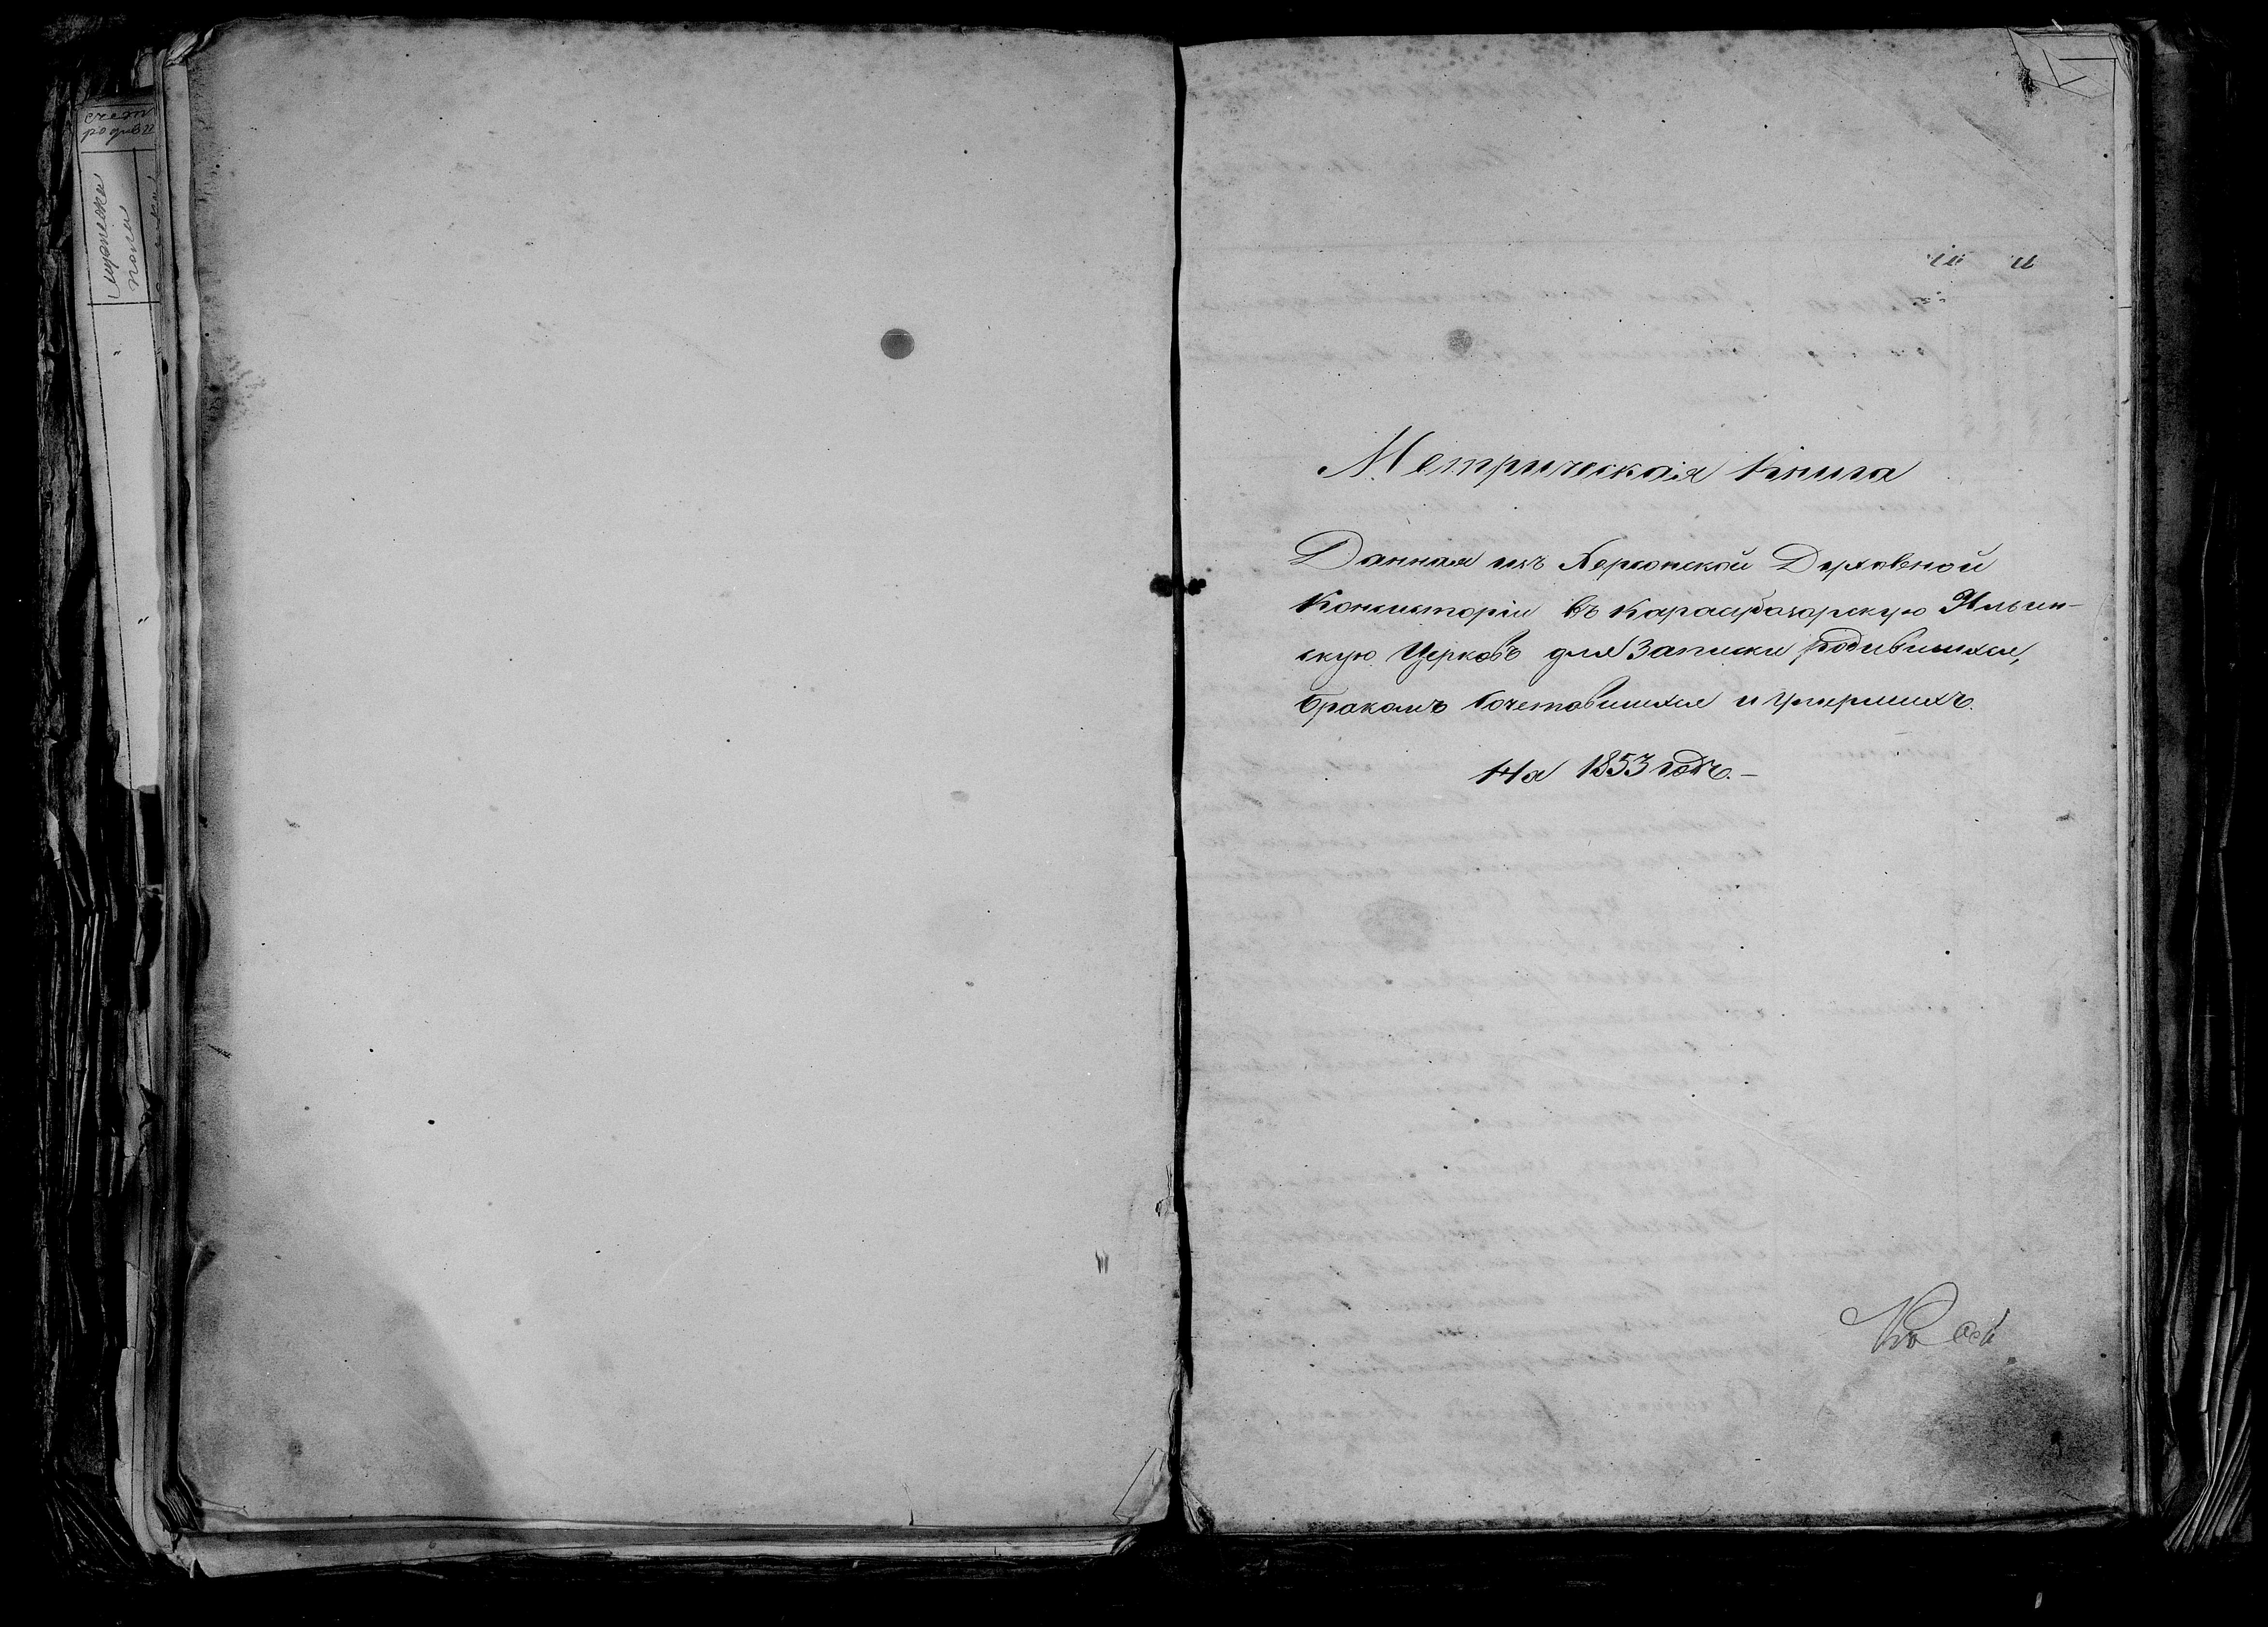 счетъ
родив
мужеска
полы
Метрическая Книга
Данная изъ Херсонской Духовной
Консисторіи въ Карасубазарскую Ильин-
скую Церковъ для Записки родившихся,
бракомъ Сочетавшихся и Умершихъ.
На 1853 годъ.-